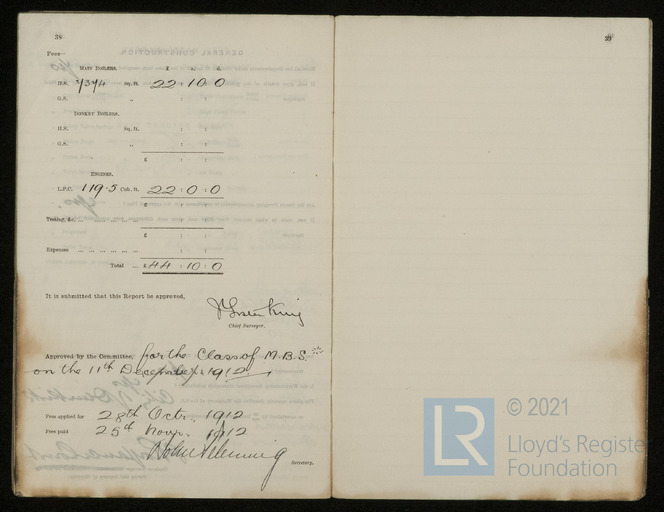 38
Fees—
MAIN BOILERS. £ s. d.
H.S. Sq. ft. 22 : 10 : 0
G.S. „ : :
DONKEY BOILERS.
H.S. Sq. ft. : :
G.S. „ : :
£ : :
ENGINES.
L.P.C. 119.5 Cub. ft. 22 : 0 : 0
£ : :
Testing, &c. ... : :
£ : :
Expenses ... : :
Total ... £ 44 : 10 : 0
It is submitted that this Report be approved,
J Foster King
Chief Surveyor.
Approved by the Committee, for the Class of M.B.S.
on the 11th December 1912
Fees applied for 28th Octr. 1912
Fees paid 25th Novr. 1912
Secretary.
39
© 2021
LR
Lloyd's Register
Foundation